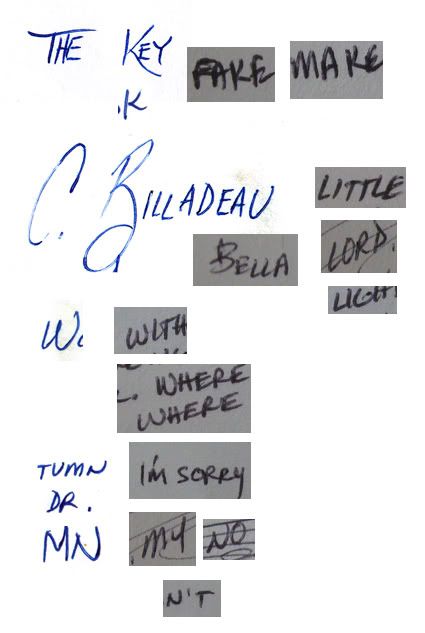 THE KEY FAKE MAKE
.K
C. BILLADEAU LITTLE
BELLA LORD.
LIGH
W. WITH
WHERE
WHERE
TUMN I'M SORRY
DR.
MN MY NO
N'T